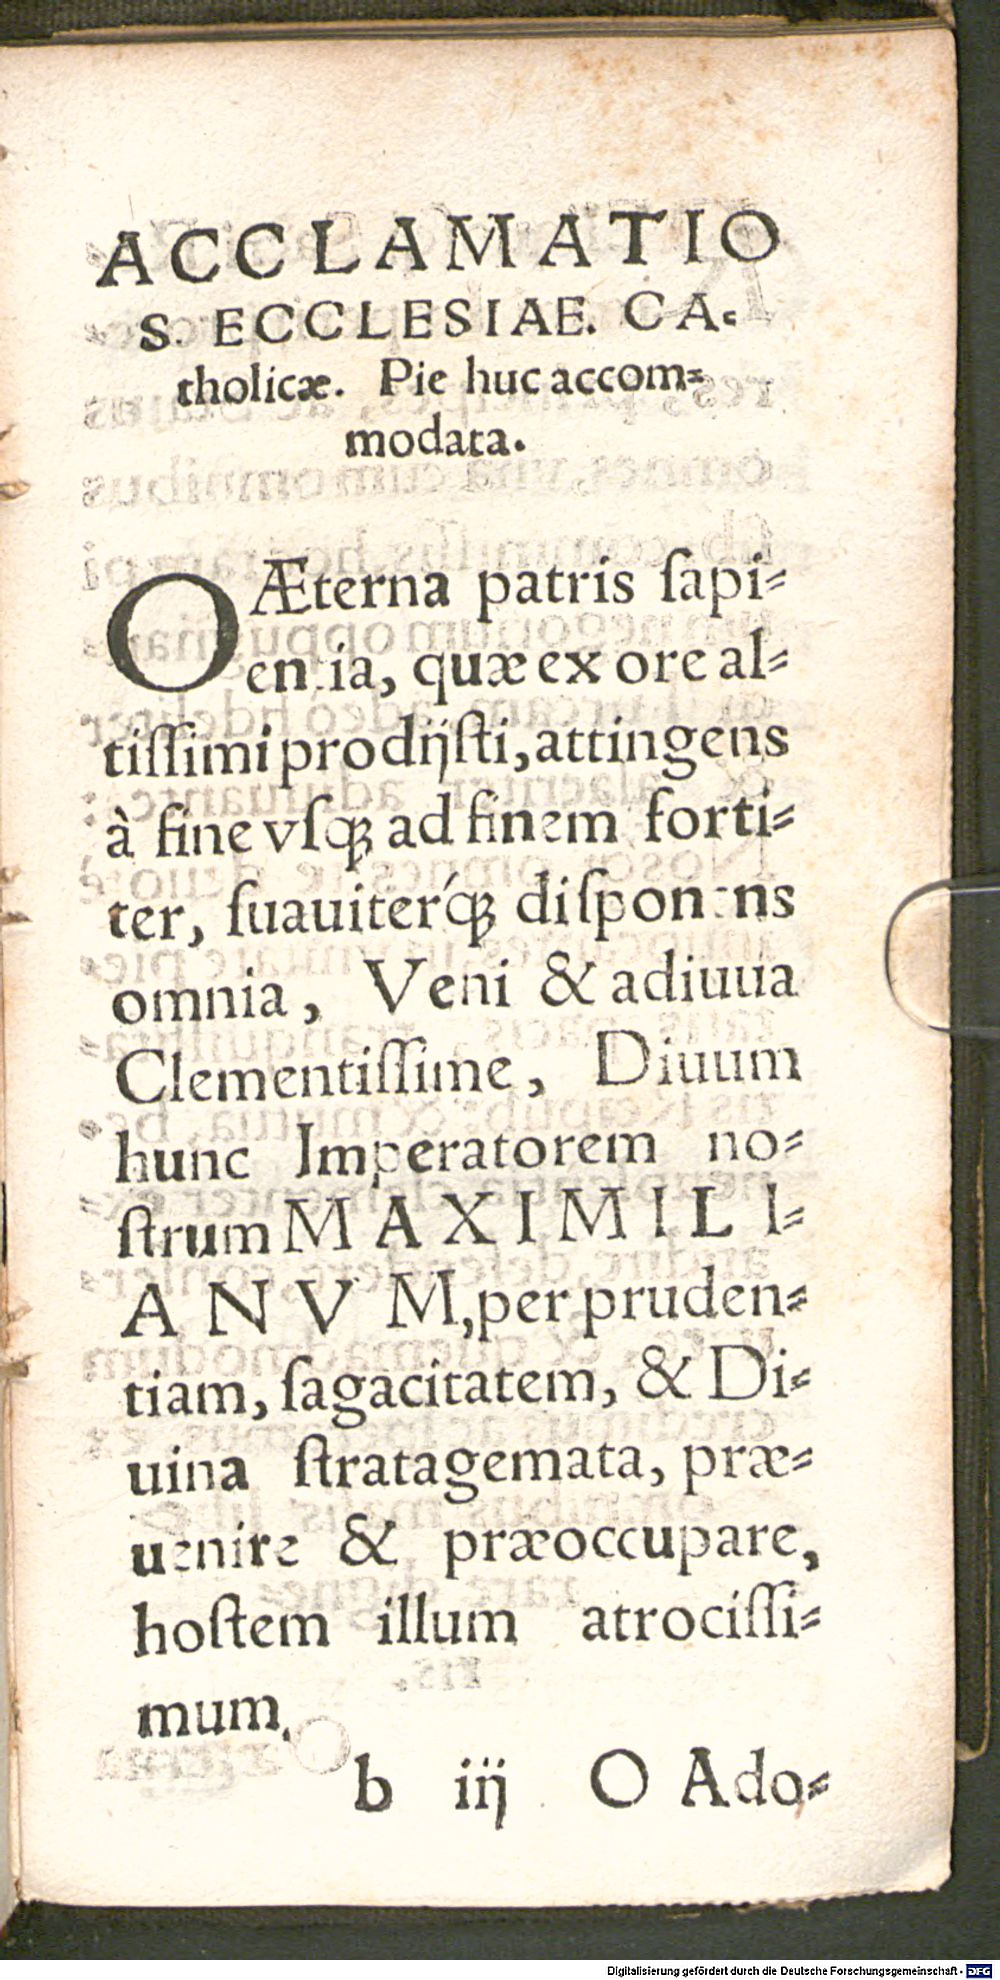 ACCLAMATIO
S. ECCLESIAE. CA⸗
tholicæ. Pie huc accom⸗
modata.
O Æterna patris ſapi⸗
entia, quæ ex ore al⸗
tiſſimi prodijſti, attingens
à fine vſq; ad finem forti⸗
ter, ſuauiterq́; diſponens
omnia, Veni & adiuua
Clementiſſime, Diuum
hunc Imperatorem no⸗
ſtrum MAXIMILI⸗
ANVM, per pruden⸗
tiam, ſagacitatem, & Di⸗
uina ſtratagemata, præ⸗
uenire & præoccupare,
hoſtem illum atrociſſi⸗
mum.
b iij O Ado⸗
Digitalisierung gefördert durch die Deutsche Forschungsgemeinschaft - DFG